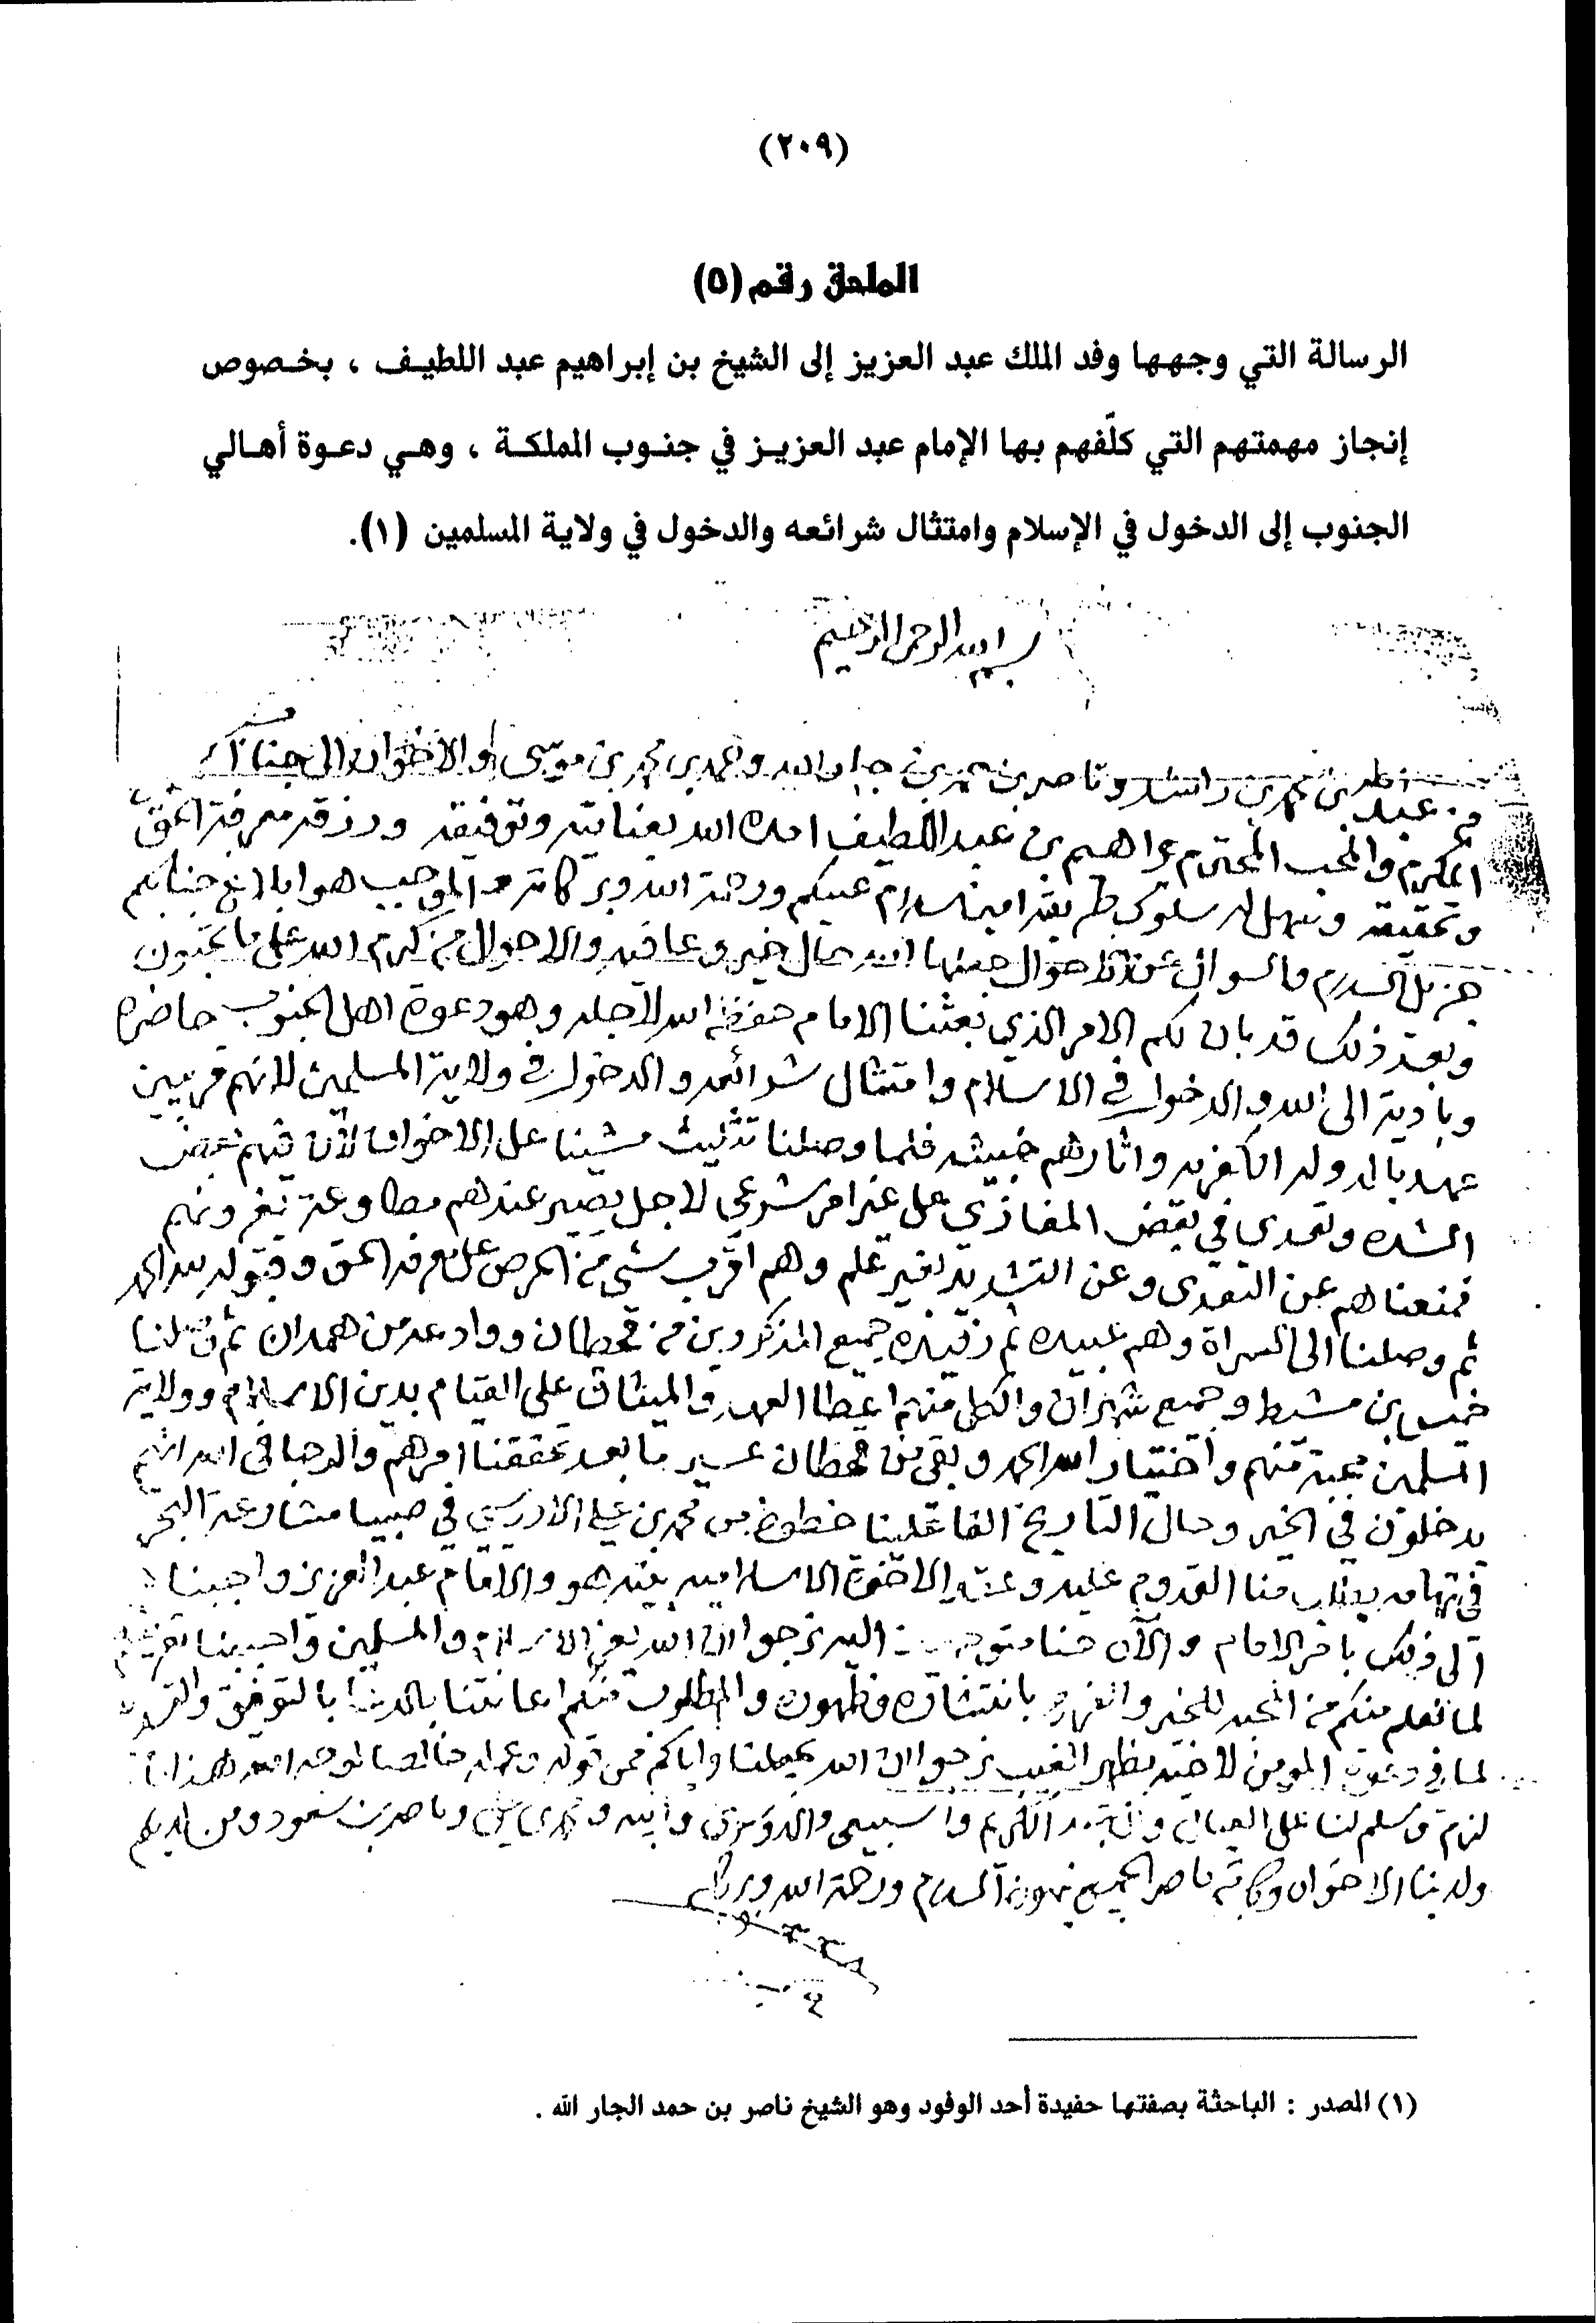 (٢٠٩)
الملحق رقم (٥)
الرسالة التي وجهها وفد الملك عبد العزيز إلى الشيخ بن إبراهيم عبد اللطيف ، بخصوص
إنجاز مهمتهم التي كلّفهم بها الإمام عبد العزيز في جنوب المملكة ، وهي دعوة أهالي
الجنوب إلى الدخول في الإسلام وامتثال شرائعه والدخول في ولاية المسلمين (١).
بسم الله الرحمن الرحيم
من عبد بن محمد بن راشد وناصر بن حمد بن جار الله ومحمد بن محمد بن موسى والاخوان الى جناب
المكرم والمحب المحترم ابراهيم بن عبد اللطيف امده الله بعنايته وتوفيقه ورزقه معرفة الحق
وتحقيقه وسهل له سلوك طريقه امين سلام عليكم ورحمة الله وبركاته الموجب هو ابلاغ جنابكم
جزيل السلام والسوال عن الاحوال جعلها الله حال خير وعافيه والاحوال من كرم الله على ما تحبون
وبعد ذلك قد بان لكم الامر الذي بعثنا الامام حفظه الله لاجله وهو دعوة اهل الجنوب حاضره
وبادية الى الله والدخول في الاسلام وامتثال شرائعه والدخول في ولاية المسلمين لانهم قريبين
عهد بالدوله الكفريه واثارهم خبيثه فلما وصلنا تثليث مشينا على الاخوان لان فيهم بعض
الشده وتعدى في بعض المغازي على غير امر شرعي لاجل يصير عندهم مطاوعة
فمنعناهم عن التعدى وعن التشديد بغير علم وهم اقرب شي من الحرص على معرفة الحق وقبوله لله الحمد
ثم وصلنا الى السراة وهم عبيده ثم رفيده جميع المذكورين من قحطان ووادعه من همدان ثم وصلنا
خميس بن مشيط وجميع شهران والكل منهم اعطا العهد والميثاق على القيام بدين الاسلام وولاية
المسلمين محبة منهم واختيار لله الحمد وبقي من قحطان عسير ما بعد تحققنا امرهم والرجا في الله انهم
يدخلون في الخير وحال التاريخ الفا علينا خطوط من محمد بن علي الادريسي في صبيا مشارعة البحر
في تهامه يطلب منا القدوم عليه وعقد الاخوة الاسلاميه بينه هو والامام عبد العزيز واجبينا
الى ذلك بامر الامام والآن حنا متوجهين اليه نرجوا ان الله يعز الاسلام والمسلمين واحببنا تعريفكم
لما نعلم منكم من المحبه للخير والفرح بانتشاره وظهوره والمطلوب منكم اعانتنا بالدعا بالتوفيق
لما في دعوة المومن لاخيه بظهر الغيب نرجوا ان الله يجعلنا واياكم ممن قوله وعمله خالصا لوجه الله هذا ما
لزم وسلم لنا على العيال الكريم والدوسري وابنه وناصر بن سعود ومن لديكم
ولدينا الاخوان وكاتبه ناصر الجميع ينهون السلام ورحمة الله وبركاته
(١) المصدر : الباحثة بصفتها حفيدة أحد الوفود وهو الشيخ ناصر بن حمد الجار الله .